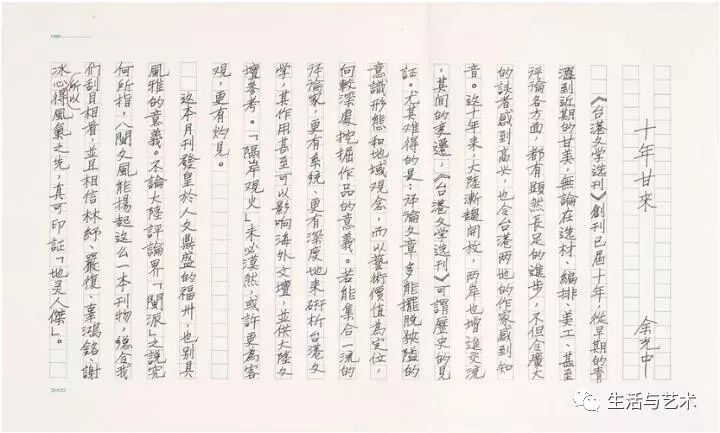 十年甘來
余光中
《台港文学选刊》創刊已屆十年，從早期的青
澀到近期的甘美，無論在选材、編排、美工、甚至
評論各方面，都有顯然長足的進步，不但令廣大
的讀者感到高兴，也令台港两地的作家感到知
音。这十年來，大陸漸趨開放，两岸也增進交流
，其间的变遷，《台港文学选刊》可謂歷史的見
証。尤其难得的是：評論文章多能擺脱狹隘的
意識形態和地域观念，而以藝術價值為定位，
向較深處挖掘作品的意義。若能集合一流的
評論家，更有系统、更有深度地來研析台港文
学，其作用甚至可以影响海外文壇，並供大陸文
壇参考。「隔岸观火」未必漠然，或許更為客
观，更有灼見。
这本月刊發皇於人文鼎盛的福州，也别具
風雅的意義。不論大陸評論界「閩派」之説究
何所指，八閩文風能揚起这么一本刊物，總令我
們刮目相看，並且相信林紓、嚴復、辜鴻銘、謝
冰心所以得風氣之先，真可印証「地灵人傑」。
生活与艺术